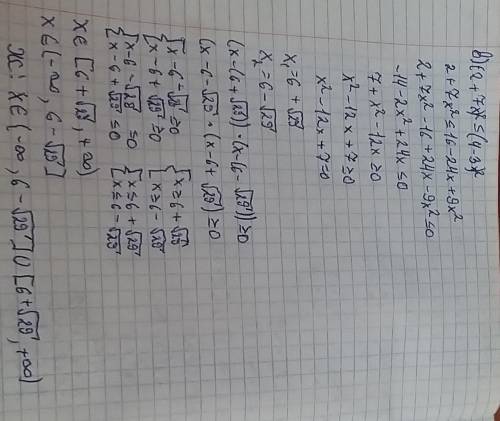 2+7x² ≤ 16-24x+9x²
2+7x²-16+24x-9x² ≤ 0
-14-2x²+24x ≤ 0
7+x²-12x ≥ 0
x²-12x+7 ≥ 0
x²-12x+7=0
x₁=6+√29
x₂=6-√29
(x-(6+√29))·(x-(6-√29)) ≥ 0
(x-6-√29)·(x-6+√29) ≥ 0
{x-6-√29 ≥ 0 {x ≥ 6+√29
{x-6+√29 ≥ 0 {x ≥ 6-√29
{x-6-√29 ≤ 0 {x ≤ 6+√29
{x-6+√29 ≤ 0 {x ≤ 6-√29
x∈[6+√29, +∞)
x∈(-∞, 6-√29]
x∈(-∞, 6-√29]∪[6+√29, +∞)